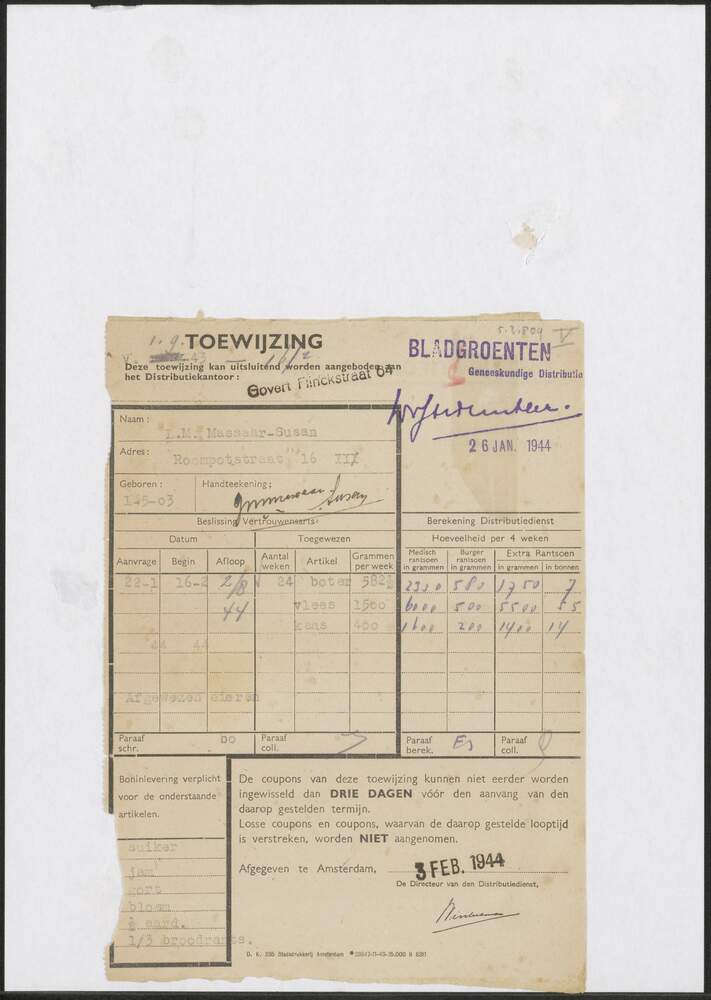 TOEWIJZING
Deze toewijzing kan uitsluitend worden aangeboden aan
het Distributiekantoor:
Govert Flinckstraat 64
BLADGROENTEN V
Geneeskundige Distributie
26 JAN. 1944
Naam:
L.M. Massaar-Susan
Adres:
Roompotstraat 16 III
Geboren: Handteekening;
1-5-03
Beslissing Vertrouwensarts: Berekening Distributiedienst
Datum Toegewezen Hoeveelheid per 4 weken
Aanvrage Begin Afloop Aantal weken Artikel Grammen per week Medisch rantsoen in grammen Burger rantsoen in grammen Extra Rantsoen in grammen in bonnen
22-1 16-2 2/8 24 boter 582½ 2330 580 1750 7
44 vlees 1500 6000 500 5500 55
kaas 400 1600 200 1400 14
44 44
Afgewezen eieren
Paraaf schr. DO Paraaf coll. Paraaf berek. Paraaf coll.
Boninlevering verplicht
voor de onderstaande
artikelen.
suiker
jam
gort
bloem
½ aard.
1/3 broodrants.
De coupons van deze toewijzing kunnen niet eerder worden
ingewisseld dan DRIE DAGEN vóór den aanvang van den
daarop gestelden termijn.
Losse coupons en coupons, waarvan de daarop gestelde looptijd
is verstreken, worden NIET aangenomen.
Afgegeven te Amsterdam, 3 FEB. 1944
De Directeur van den Distributiedienst,
Stadsdrukkerij Amsterdam